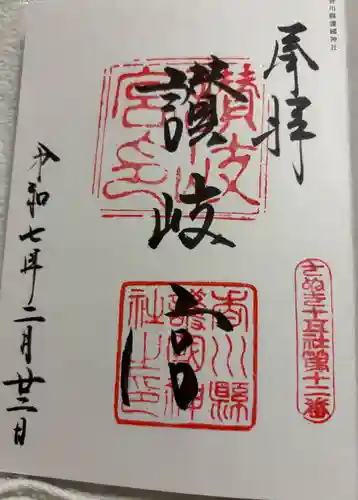 香川縣護國神社
奉拝
さぬき十五社第十二番
讃岐宮
讃岐宮之印
香川縣護國神社之印
令和七年二月廿二日